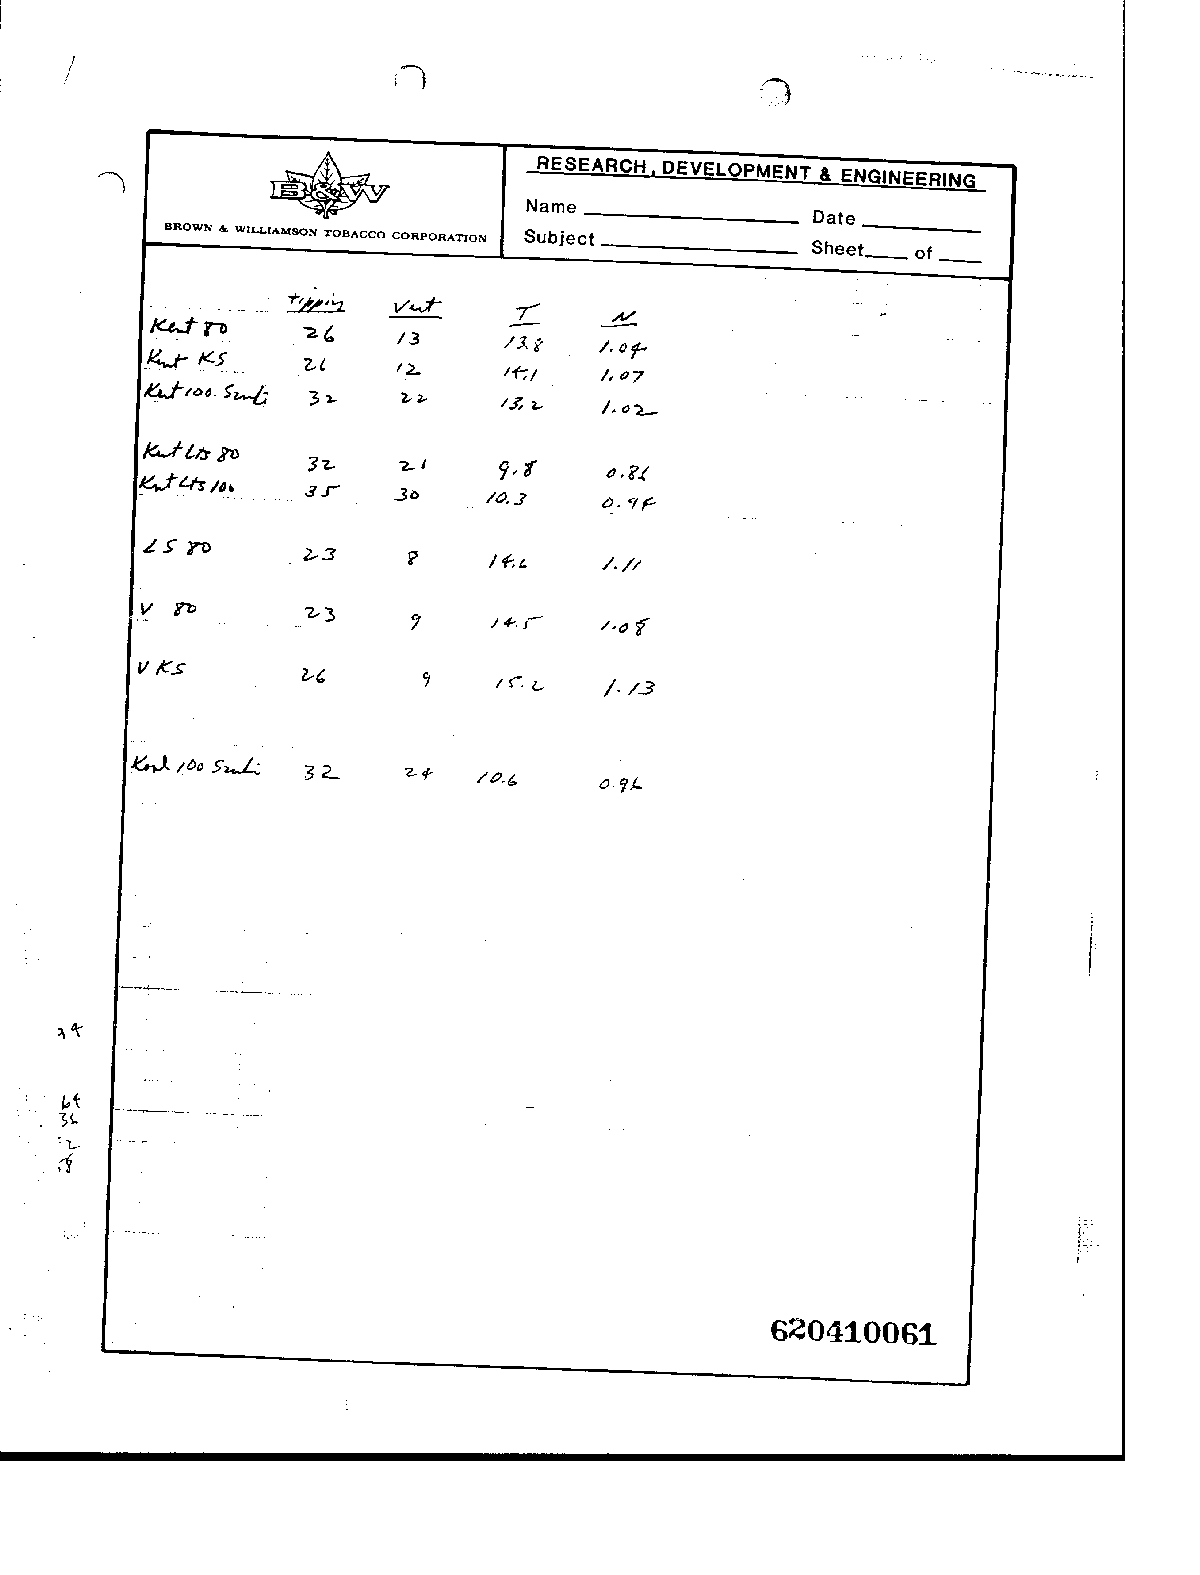 B&W
BROWN & WILLIAMSON TOBACCO CORPORATION
RESEARCH, DEVELOPMENT & ENGINEERING
Name Date
Subject Sheet of
tipping Vent T N
Kent 80 26 13 13.8 1.04
Kent KS 26 12 14.1 1.07
Kent 100 32 22 13.2 1.02
Kent Lts 80 32 21 9.8 0.86
Kent Lts 100 35 30 10.3 0.94
LS 80 23 8 14.6 1.11
V 80 23 9 14.5 1.08
V KS 26 9 15.2 1.13
Kool 100 32 24 10.6 0.96
64
36
620410061